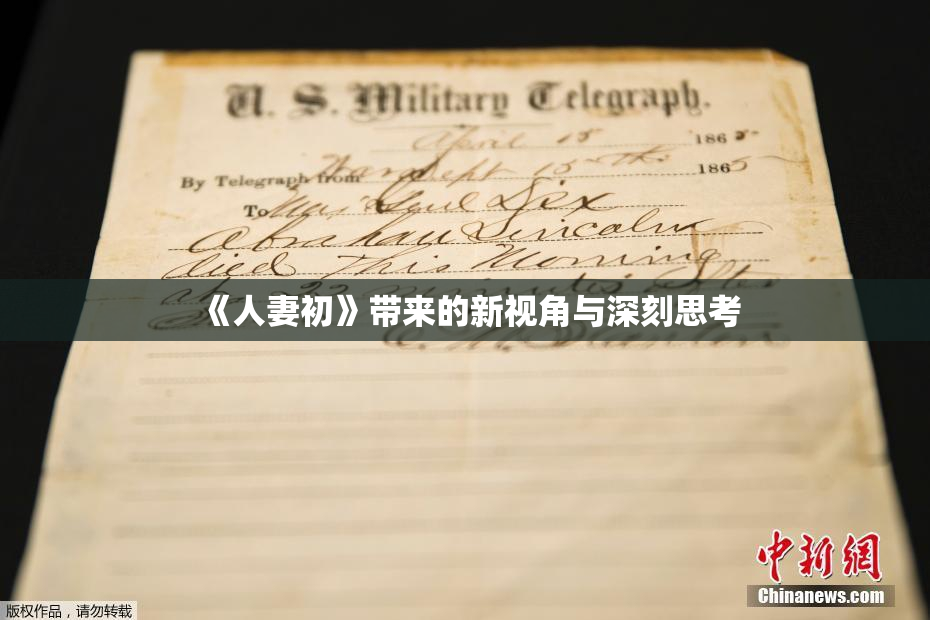 U. S. Military Telegraph.
April 15 1865
By Telegraph from War Dept 15th 1865
To Maj Genl Dix
Abraham Lincoln
died This Morning
at 22 minutes after
《人妻初》带来的新视角与深刻思考
E. M. Stanton
中新网
Chinanews.com
版权作品，请勿转载